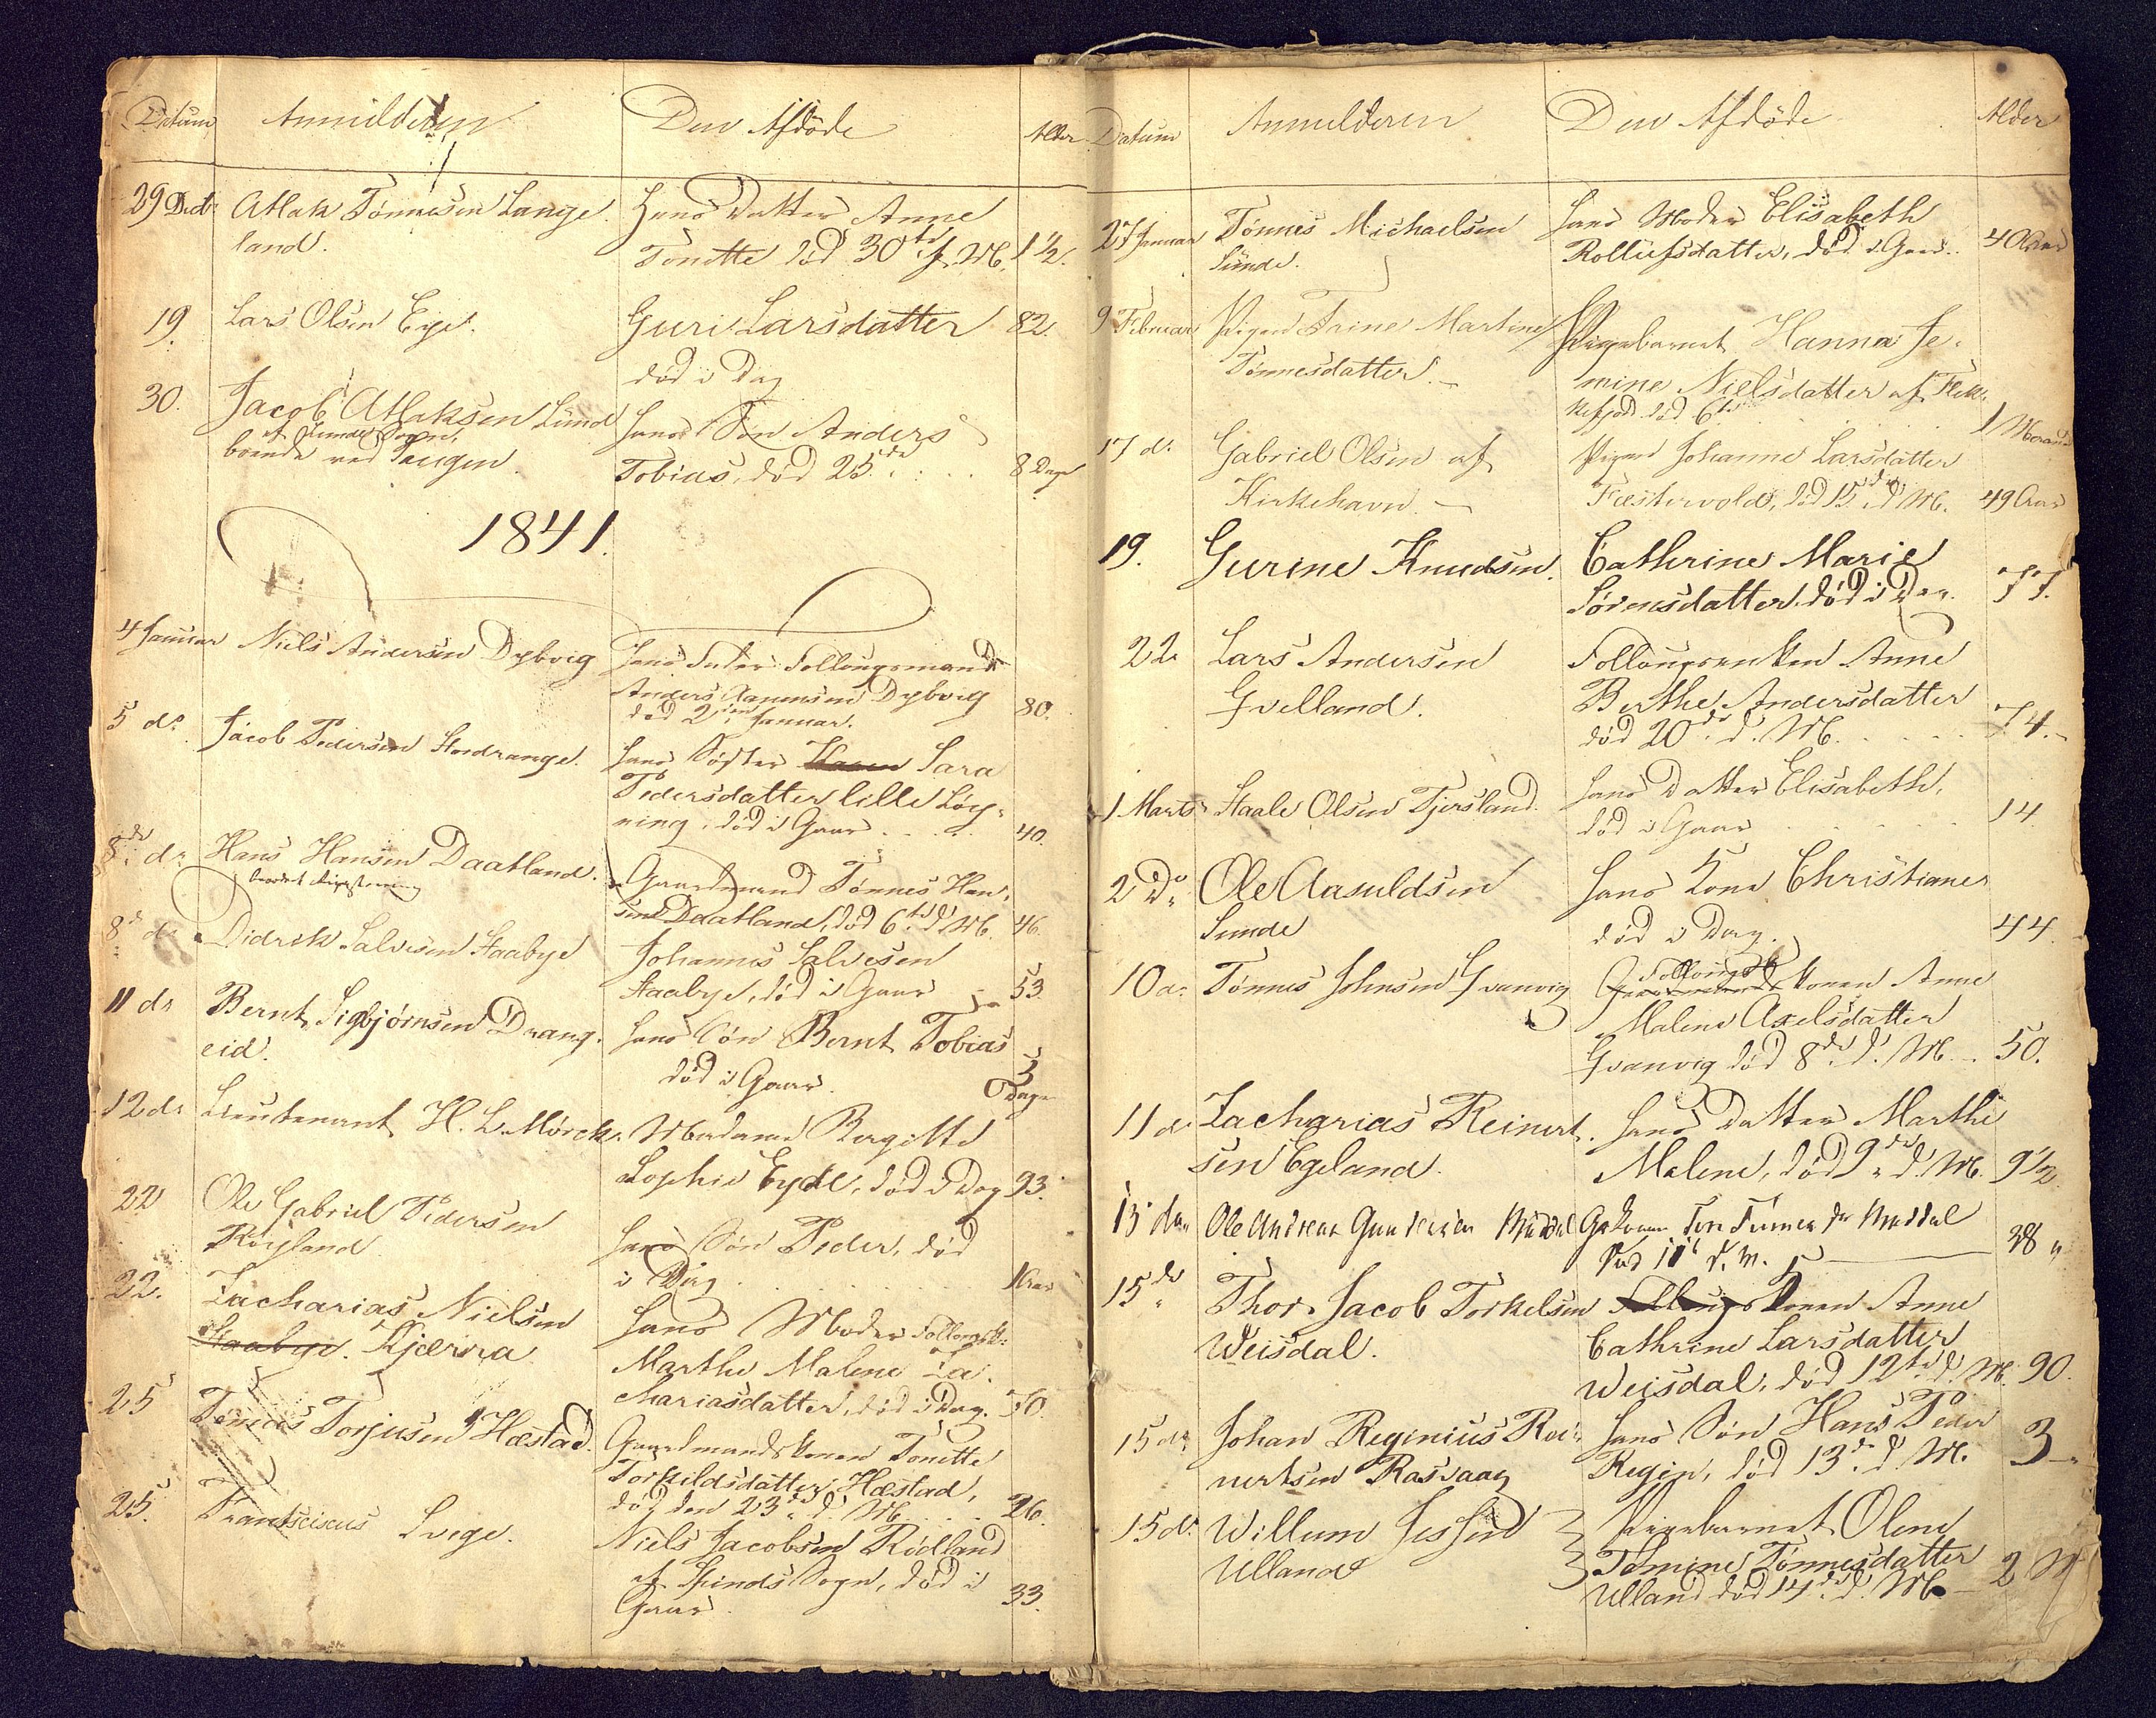 Datum Anmelderen Den Afdøde Alder
29 Decbr Atlak Tønnesen Lange- Hans Datter Anne
land. Tonette død 30te f. M. 1 1/2.
19. Lars Olsen Eye. Guri Larsdatter 82.
død i Dag
30. Jacob Atlaksen Lund Hans Søn Anders
af Lunde Sogn,
boende ved Tengen. Tobias, død 25de 8 Dage
1841.
4 Januar Niels Andersen Dybvig Hans Fader Follougsmand
Anders Aanensen Dybvig 80.
død 2den Januar.
5 do Jacob Pedersen Stordrange. Hans Søster Karen Sara
Pedersdatter lille Løy-
ning, død i Gaar 40.
8de do Hans Hansen Daatland. Gaardmand Tønnes Han-
sen Daatland, død 6te d. M. 46.
8de do Didrik Salvesen Staabye Johannes Salvesen
Haabye, død i Gaar 53
11 do Bernt Sigbjørnsen Drang- Hans Søn Bernt Tobias
eid. død i Gaar. 3 Dage
12 do Lieutenant H. L. Mørch. Madame Bergitte
Sophie Eyde, død i Dag 93.
22 Ole Gabriel Pedersen Hans Søn Peder, død
Røyland i Dag. 1 Aar
22. Zacharias Nielsen Hans Moder Follougsk:
Haabye. Kjærra Marthe Malene Za-
chariasdatter, død i Dag. 70.
25 Tønnes Torjusen Hæstad. Gaardmandskonen Tonette
Torkildsdatter Hæstad,
død den 23de d. M. 26.
25. Frantsciscus Svege. Niels Jacobsen Rødland
af Spinds Sogn, død i
Gaar. 33.
Datum Anmelderen Den Afdøde Alder
27 Januar Tønnes Michaelsen Hans Moder Elisabeth
Sunde. Rollufsdatter, død i Gaar. 40 Aar
9 Februar Pigen Trine Martine Pigebarnet Hanna Je-
Tønnesdatter. mine Nielsdatter af Flek-
kefjord død 6te 1 Maaned
17 do Gabriel Olsen af Pigen Johanne Larsdatter
Kirkehavn. Fæstervold, død 15de d. M. 49 Aar
19. Gurine Knudsen. Cathrine Marie
Sørensdatter, død i Dag. 77.
22 Lars Andersen Follougsenken Anne
Gvelland. Berthe Andersdatter
død 20de d. M. 74.
1 Marts Staale Olsen Tjersland. Hans Datter Elisabeth,
død i Gaar 14
2 Do Ole Aasuldsen Hans Kone Christiane
Sunde død i Dag. 44.
10 do Tønnes Johnsen Gvanvig Follougs
Gaardmands konen Anne
Malene Axelsdatter
Gvanvig død 8de d. M. 50.
11 do Zacharias Reinert- Hans Datter Marthe
sen Egeland. Malene, død 9de d. M. 9 1/2
15 do Ole Andreas Gundersen Møddal Gkonen Møddal
Død 11te d. M. 38
15de Thor Jacob Torkelsen Follougskonen Anne
Weisdal. Cathrine Larsdatter
Weisdal, død 12te d. M. 90.
15 do Johan Reginius Rei- Hans Søn Hans Peder
nertsen Rasvaag Regin, død 13de d. M. 3
15 do Willum Jessen Pigebarnet Olene
Ulland Tomine Tønnesdatter
Ulland død 14de d. M. 2 M